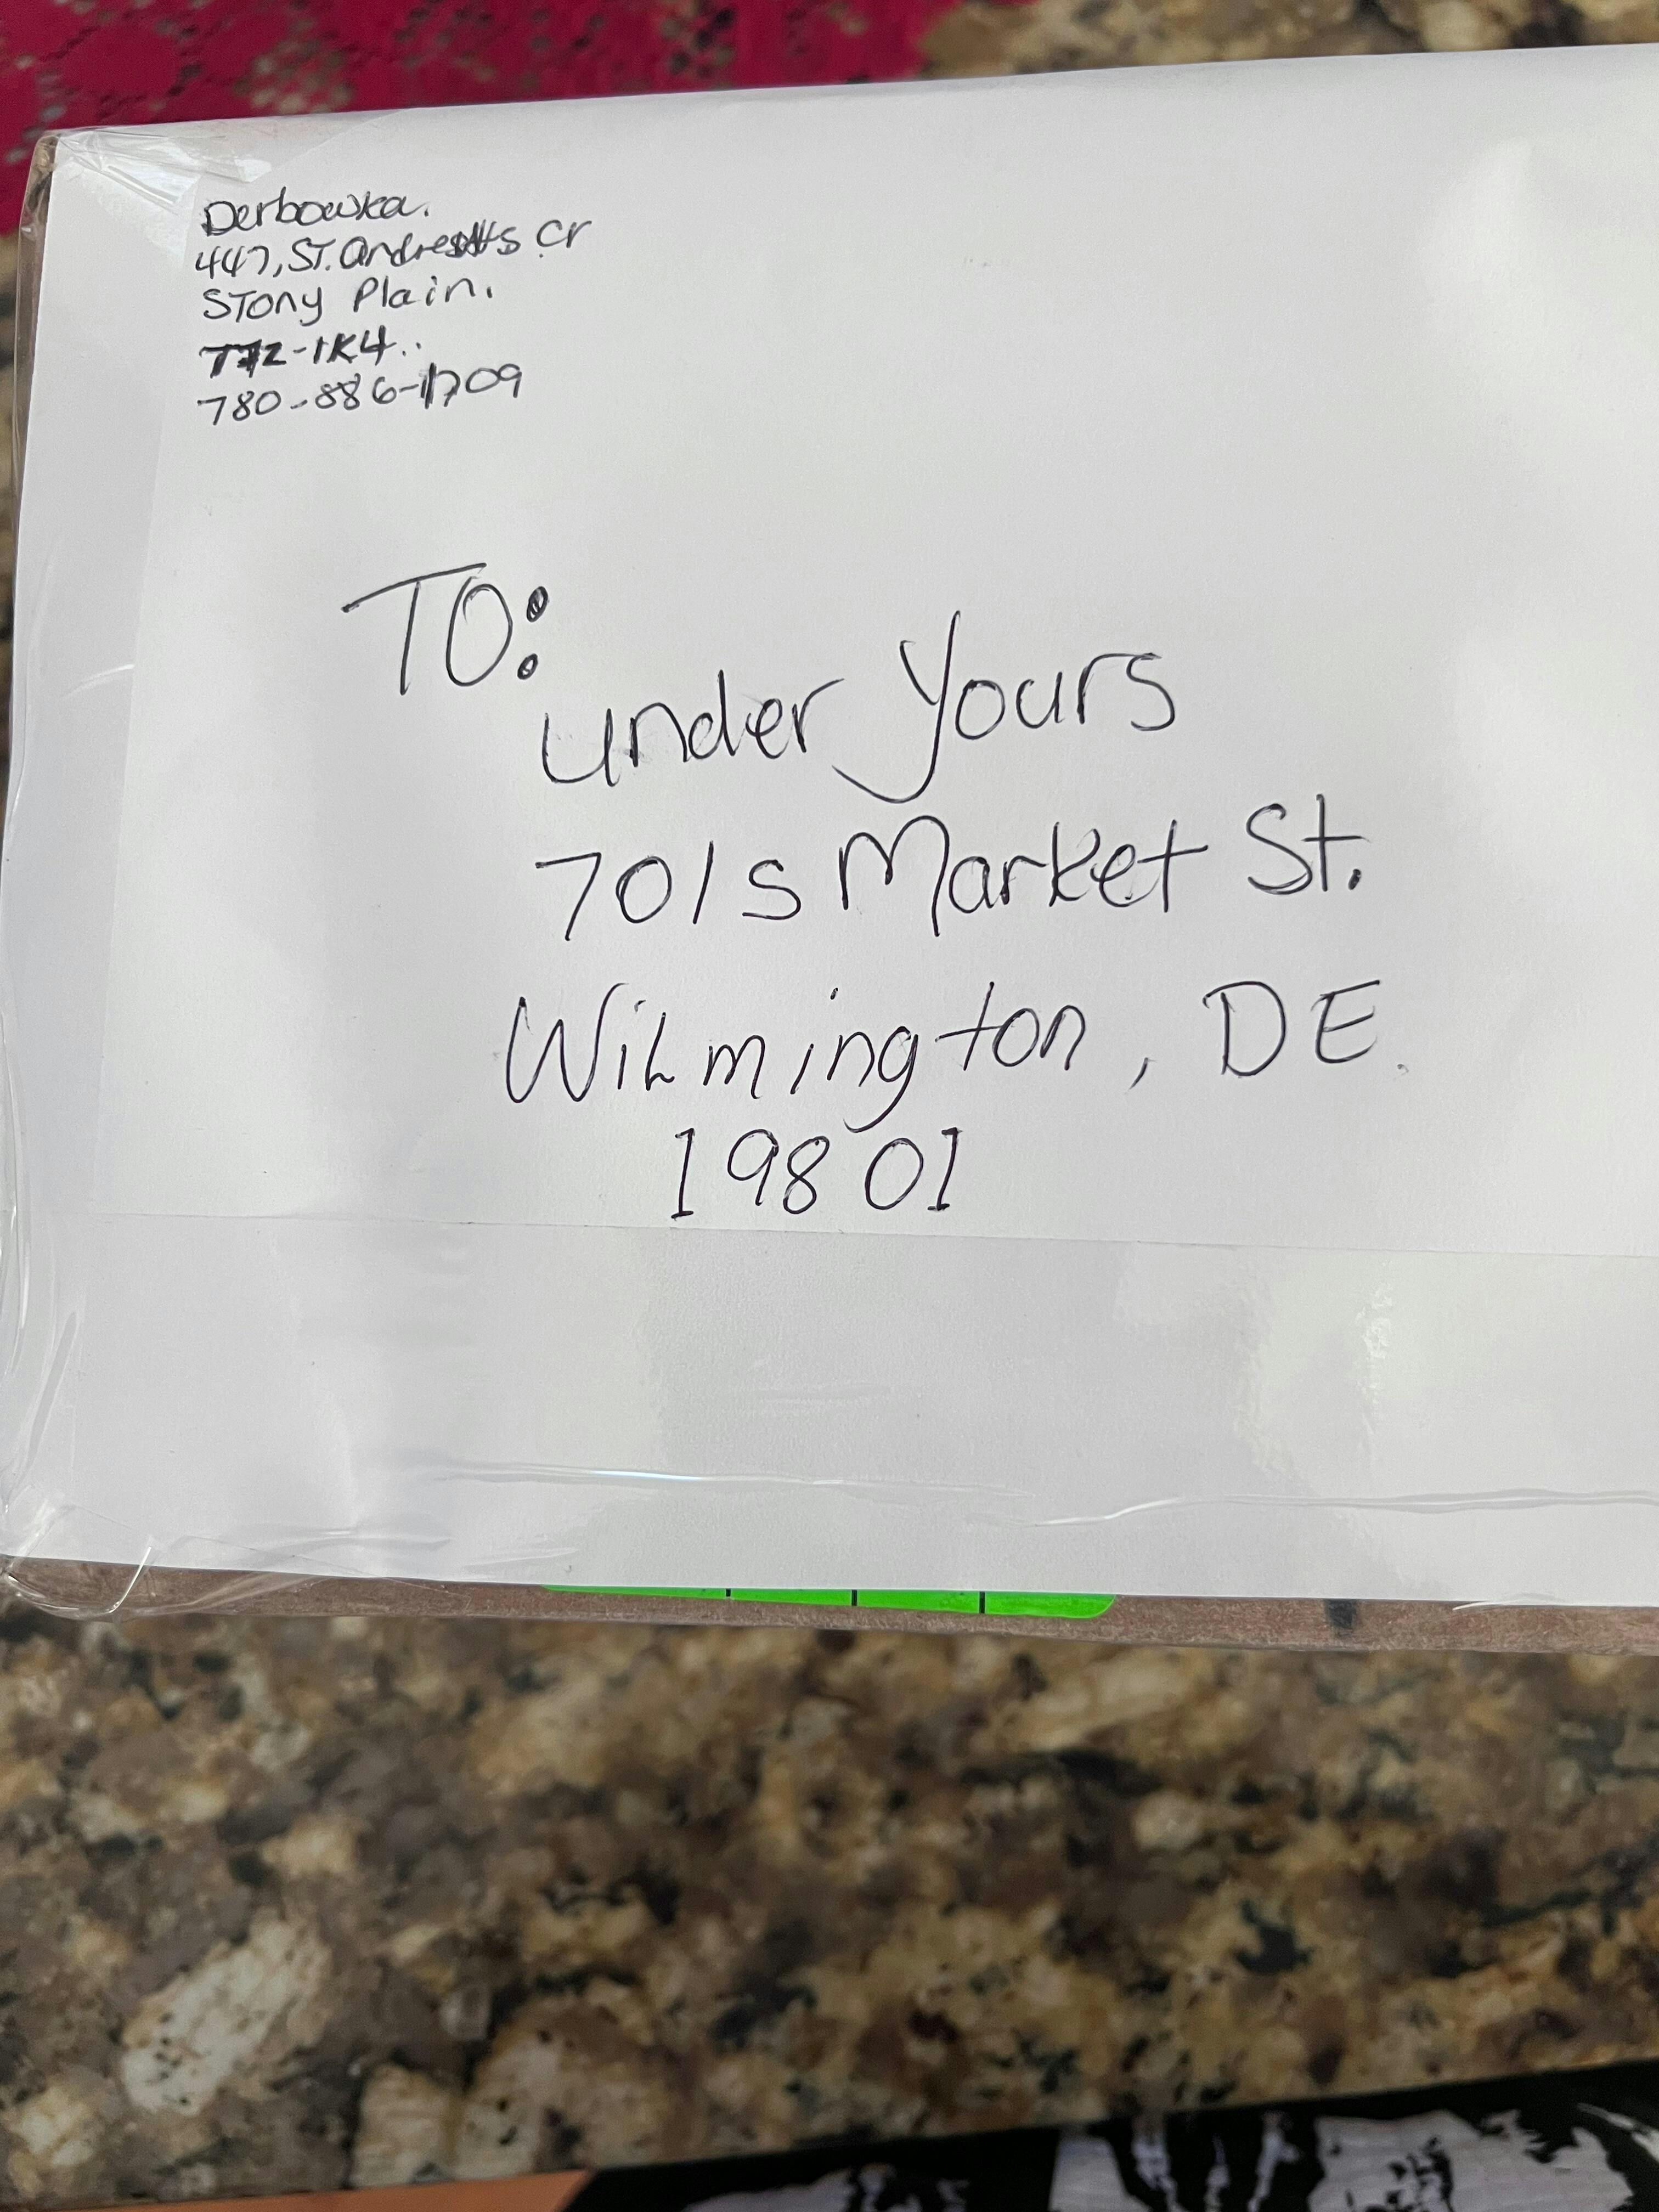 Derbowka.
447, ST. Andrews Cr
STony Plain.
T7Z-1K4..
780-886-1709
TO:
under Yours
701 S Market St.
WiLmington, DE.
19801